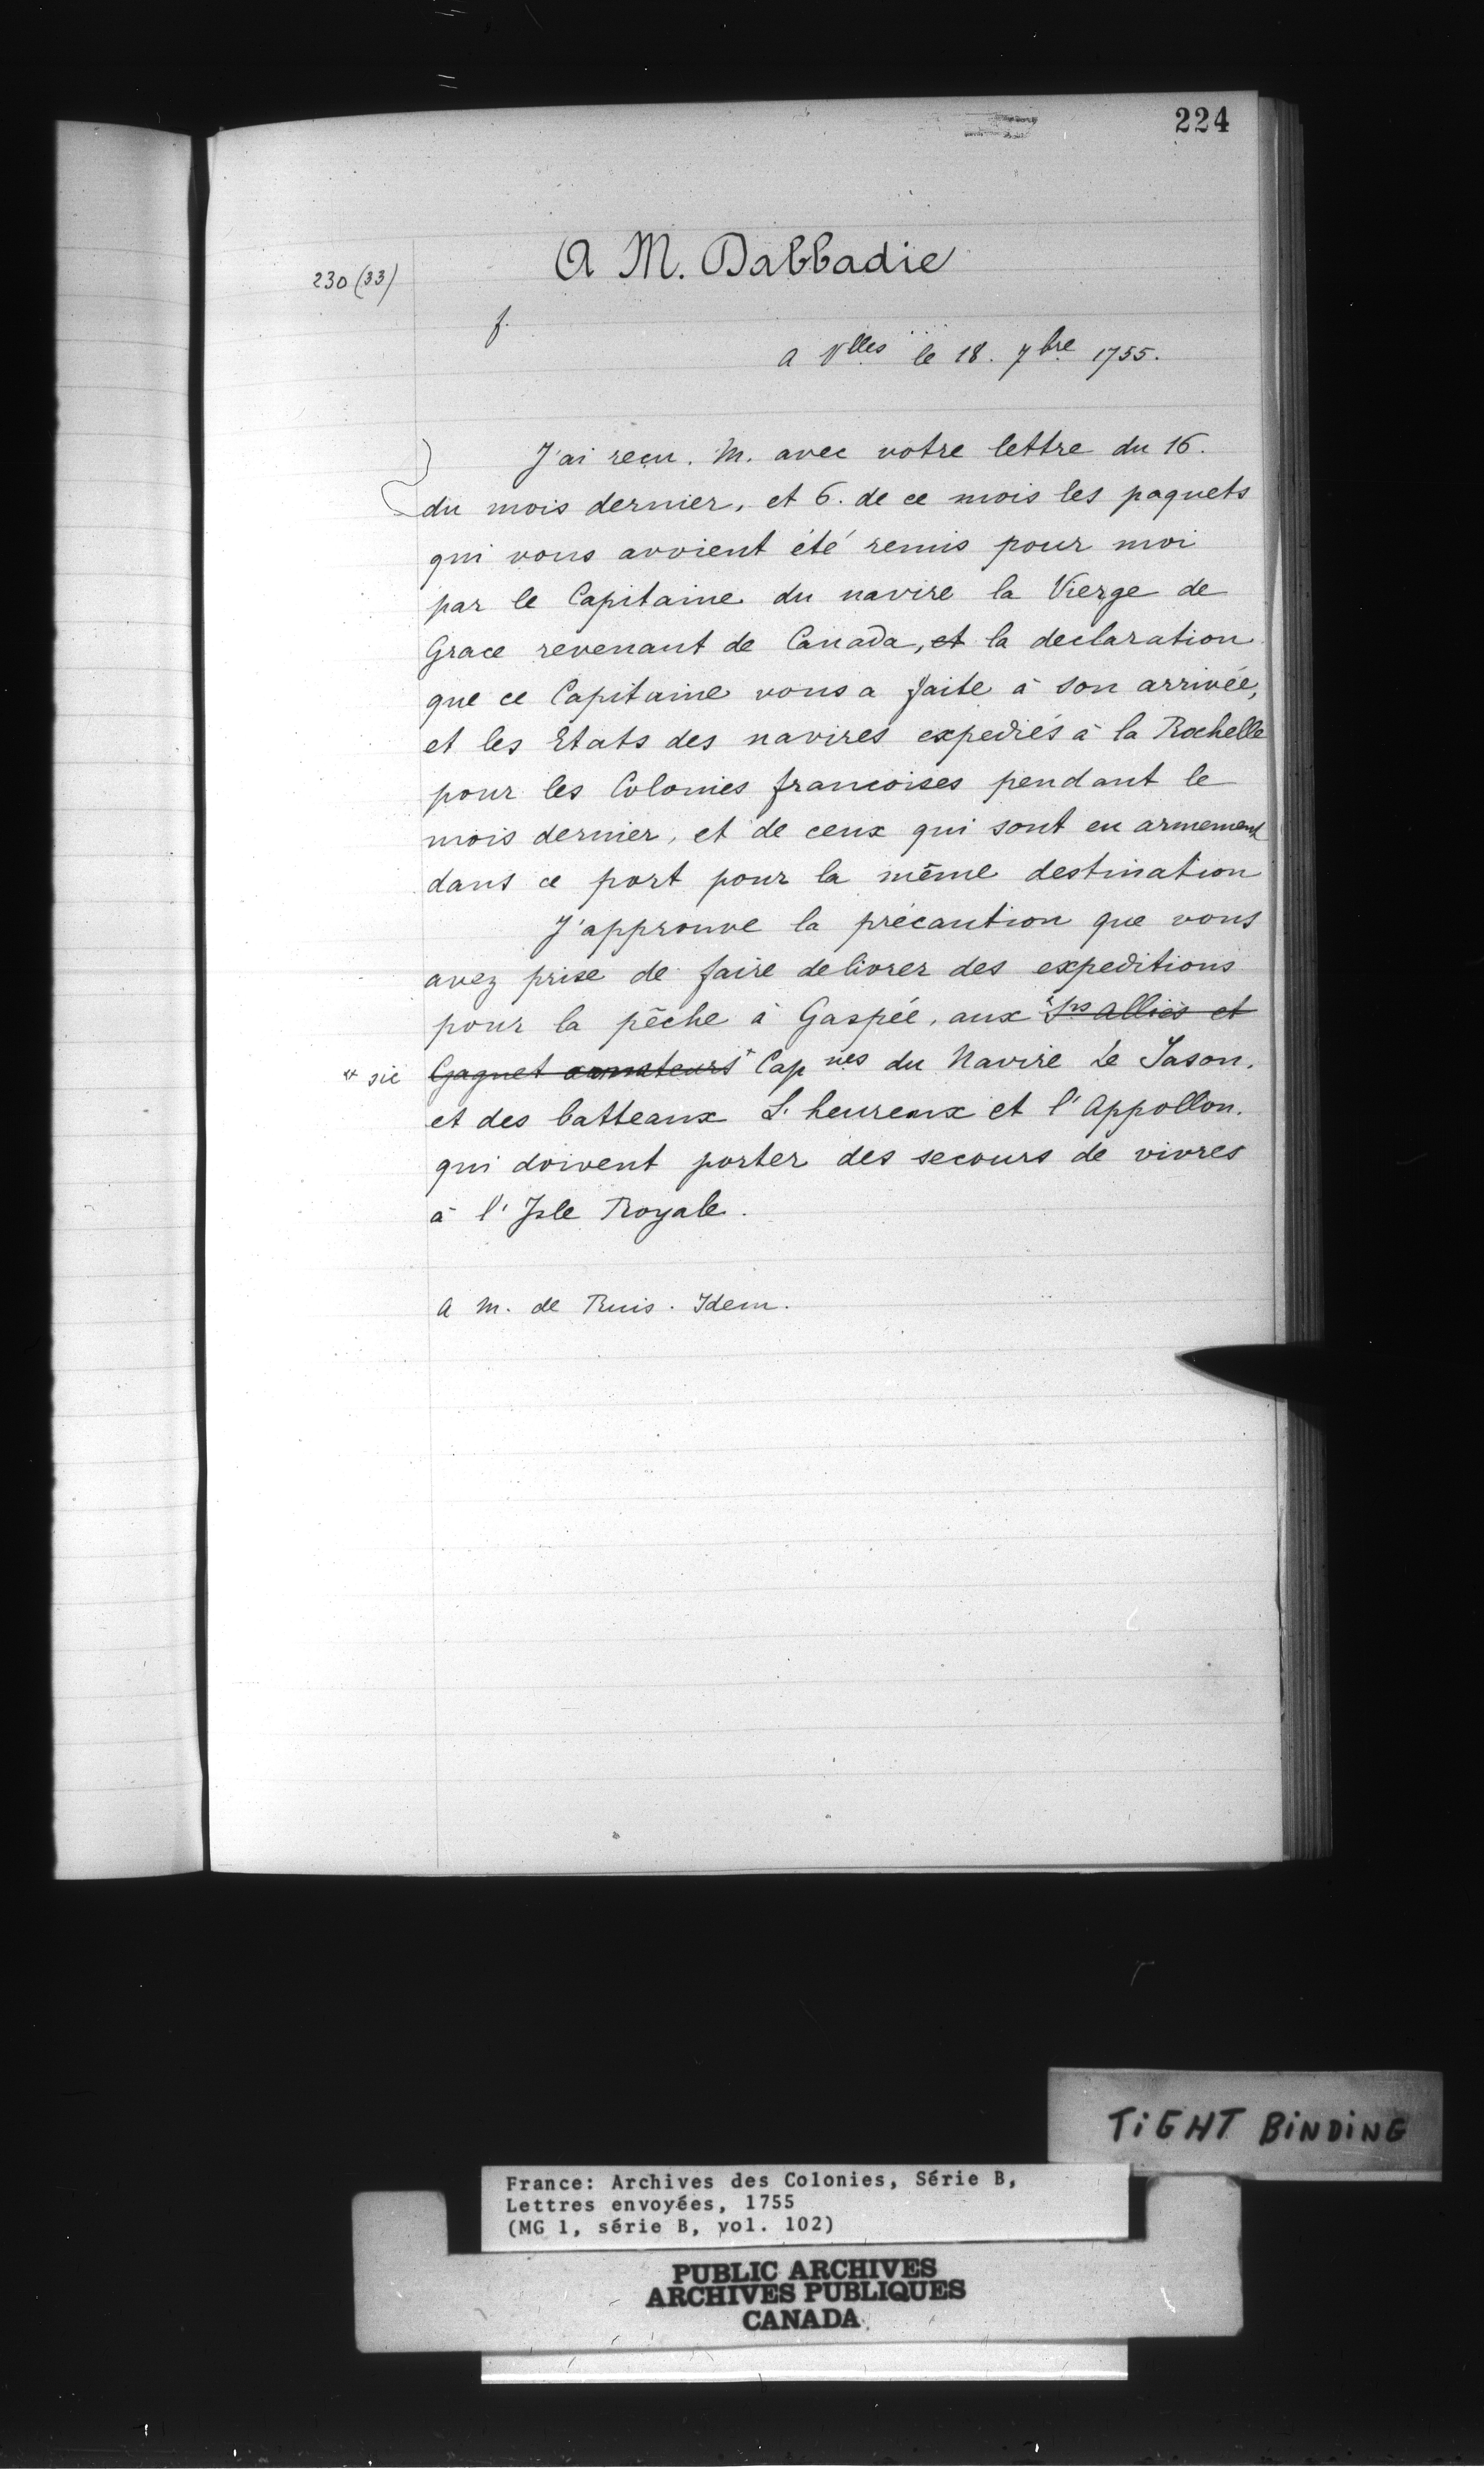 224
A M. Dabbadie
230 (33)
f.
A Vlles le 18. 7bre 1755.
J'ai reçu. M. avec votre lettre du 16.
du mois dernier, et 6. de ce mois les paquets
qui vous avoient été remis pour moi
par le Capitaine du navire la Vierge de
Grace revenant de Canada, et la declaration
que ce Capitaine vous a faite à son arrivée,
et les Etats des navires expediés à la Rochelle
pour les Colonies francoises pendant le
mois dernier, et de ceux qui sont en armement
dans ce port pour la même destination
J'approuve la précaution que vous
avez prise de faire delivrer des expeditions
pour la pêche à Gaspée, aux Srs Alliés et
* sic Gagnet armateurs* Capnes du Navire Le Jason.
et des batteaux L'heureux et l'Appollon.
qui doivent porter des secours de vivres
à l'Isle Royale.
A M. de Ruis. Idem.
TIGHT BINDING
France: Archives des Colonies, Série B,
Lettres envoyées, 1755
(MG 1, série B, vol. 102)
PUBLIC ARCHIVES
ARCHIVES PUBLIQUES
CANADA